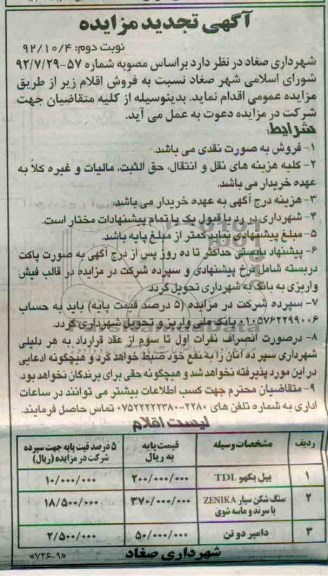 آگهی تجدید مزایده
نوبت دوم: ۹۲/۱۰/۴
شهرداری صغاد در نظر دارد براساس مصوبه شماره ۵۷-۹۲/۷/۲۹
شورای اسلامی شهر صغاد نسبت به فروش اقلام زیر از طریق
مزایده عمومی اقدام نماید. بدینوسیله از کلیه متقاضیان جهت
شرکت در مزایده دعوت به عمل می آید.
شرایط:
۱- فروش به صورت نقدی می باشد.
۲- کلیه هزینه های نقل و انتقال، حق الثبت، مالیات و غیره کلاً به
عهده خریدار می باشد.
۳- هزینه درج آگهی به عهده خریدار می باشد.
۴- شهرداری در رد یا قبول یک یا تمام پیشنهادات مختار است.
۵- مبلغ پیشنهادی نباید کمتر از مبلغ پایه باشد.
۶- پیشنهاد بایستی حداکثر تا ده روز پس از درج آگهی به صورت پاکت
دربسته شامل نرخ پیشنهادی و سپرده شرکت در مزایده در قالب فیش
واریزی به بانک به شهرداری تحویل گردد.
۷- سپرده شرکت در مزایده (۵ درصد قیمت پایه) باید به حساب
بانک ملی واریز و تحویل شهرداری گردد.
۸- درصورت انصراف نفرات اول تا سوم از عقد قرارداد به هر دلیلی
شهرداری سپرده آنان را به نفع خود ضبط خواهد کرد و هیچگونه ادعایی
در این مورد پذیرفته نخواهد شد و هیچگونه حقی برای برندگان نخواهد بود.
۹- متقاضیان محترم جهت کسب اطلاعات بیشتر می توانند در ساعات
اداری به شماره تلفن های ۲۲۸۰-۰۷۵۲۲۲۲۲۳۸۰ تماس حاصل فرمایند.
لیست اقلام
ردیف | مشخصات وسیله | قیمت پایه به ریال | ۵ درصد قیمت پایه جهت سپرده شرکت در مزایده (ریال)
۱ | بیل بکهو TDL | ۲۰۰/۰۰۰/۰۰۰ | ۱۰/۰۰۰/۰۰۰
۲ | سنگ شکن سیار ZENIKA با سرند و ماسه شوی | ۳۷۰/۰۰۰/۰۰۰ | ۱۸/۵۰۰/۰۰۰
۳ | دامپر دو تن | ۵۰/۰۰۰/۰۰۰ | ۲/۵۰۰/۰۰۰
شهرداری صغاد
«۷۳۶-۹»